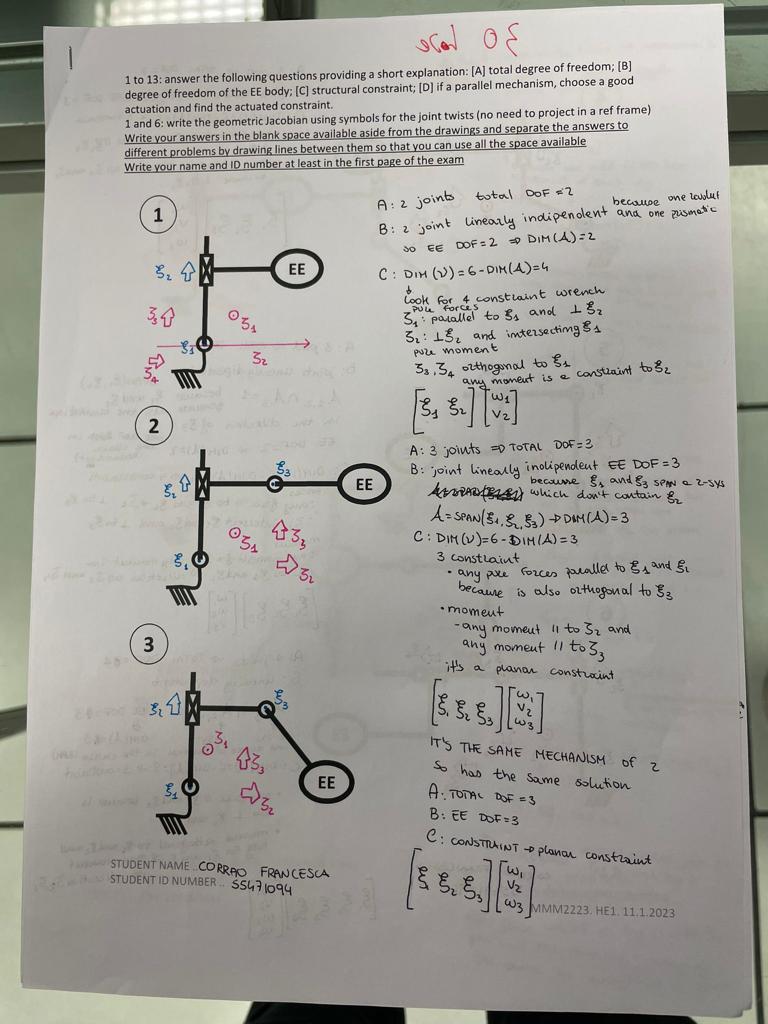 30
1 to 13: answer the following questions providing a short explanation: [A] total degree of freedom; [B]
degree of freedom of the EE body; [C] structural constraint; [D] if a parallel mechanism, choose a good
actuation and find the actuated constraint.
1 and 6: write the geometric Jacobian using symbols for the joint twists (no need to project in a ref frame)
Write your answers in the blank space available aside from the drawings and separate the answers to
different problems by drawing lines between them so that you can use all the space available
Write your name and ID number at least in the first page of the exam
1
ξ2
EE
ζ3
ζ1
ξ1
ζ2
ζ4
A: 2 joints total DOF = 2
B: 2 joint linearly indipendent because one revolut and one pismatic
so EE DOF=2 ⇒ DIM(A)=2
C: DIM(V)=6-DIM(A)=4
↓
look for 4 constraint wrench
pure forces
ζ1: parallel to ξ1 and ⊥ξ2
ζ2: ⊥ξ2 and intersecting ξ1
pure moment
ζ3, ζ4 orthogonal to ξ1
any moment is a constraint to ξ2
[ξ1 ξ2] [ω1 v2]
2
ξ3
ξ2
EE
ζ1
ζ3
ξ1
ζ2
A: 3 joints ⇒ TOTAL DOF=3
B: joint linearly indipendent EE DOF=3
because ξ1 and ξ3 span a 2-sys
which don't contain ξ2
A=SPAN(ξ1,ξ2,ξ3) → DIM(A)=3
C: DIM(V)=6-DIM(A)=3
3 constraint
• any pure forces parallel to ξ1 and ξ2
because is also orthogonal to ξ3
• moment
- any moment || to ζ2 and
any moment || to ζ3
it's a planar constraint
[ξ1 ξ2 ξ3] [ω1 v2 ω3]
3
ξ2
ξ3
ζ1
ζ3
EE
ξ1
ζ2
IT'S THE SAME MECHANISM of 2
so has the same solution
A: TOTAL DOF=3
B: EE DOF=3
C: CONSTRAINT → planar constraint
[ξ1 ξ2 ξ3] [ω1 v2 ω3]
STUDENT NAME.. CORRAO FRANCESCA
STUDENT ID NUMBER.. S5471094
MMM2223. HE1. 11.1.2023